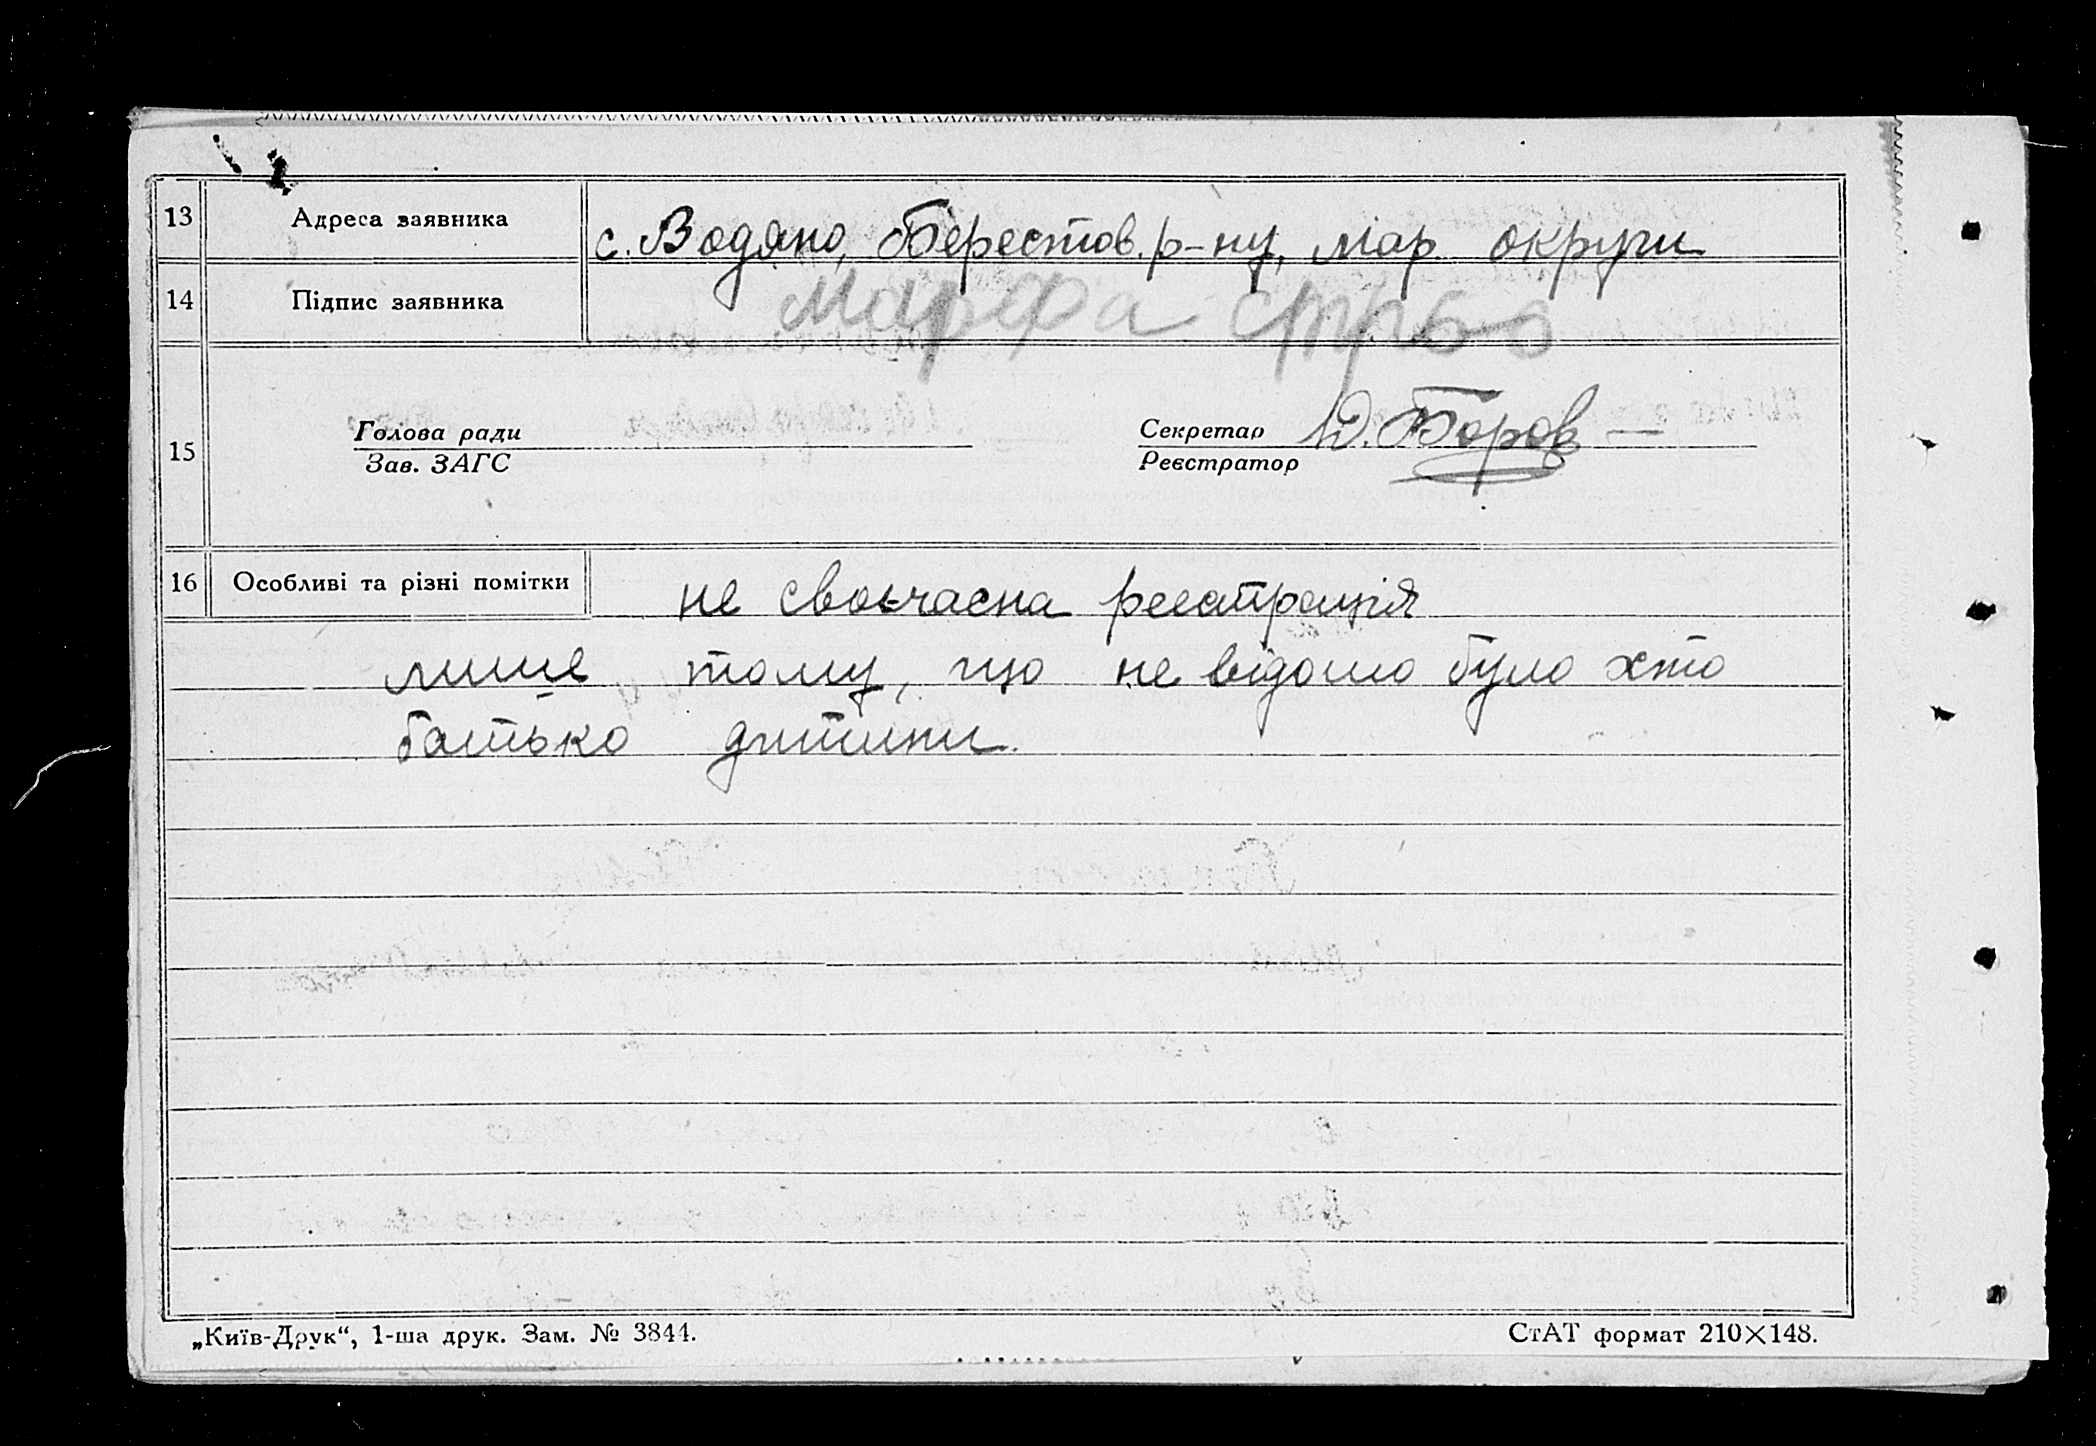 13 Адреса заявника с. Водяно, Берестов. р-ну, Мар. округи
14 Підпис заявника Марфа
15 Голова ради Секретар Д. Боров
Зав. ЗАГС Реєстратор
16 Особливі та різні помітки не своєчасна реєстрація
лише тому, що не відомо було хто
батько дитини.
„Київ-Друк“, 1-ша друк. Зам. № 3844. СтАТ формат 210×148.